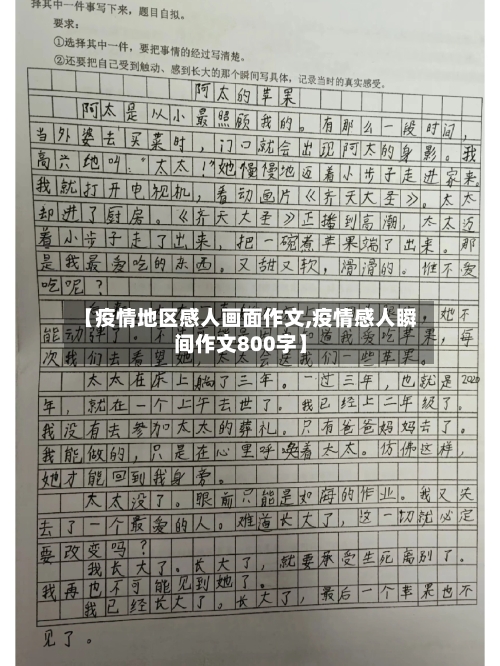 择其中一件事写下来，题目自拟。
要求：
①选择其中一件，要把事情的经过写清楚。
②还要把自己受到触动、感到长大的那个瞬间写具体，记录当时的真实感受。
阿太的苹果
阿太是从小最照顾我的。有那么一段时间，
当外婆去买菜时，门口就会出现阿太的身影。我
高兴地叫：“太太！”她慢慢地迈着小步子走进家来。
我就打开电视机，看动画片《齐天大圣》。太太
却进了厨房。《齐天大圣》正播到高潮，太太迈
着小步子走了出来，把一碗煮苹果端了出来。那
是我最爱吃的东西。又甜又软，滑滑的。谁不爱
吃呢？
她不
【疫情地区感人画面作文,疫情感人瞬
间作文800字】
能动弹了。不 道我爱吃苹果，每
次我们去看望她，太太会送我们一些苹果。
太太在床上躺了三年。一过三年，也就是2020
年，就在一个上午去世了。我已经上二年级了。
我没有去参加太太的葬礼。只有爸爸妈妈去了。
我能做的，只是在心里呼唤着太太。仿佛这样，
她才能回到我身旁。
太太没了。眼前只能是如海的作业。我又失
去了一个最爱的人。难道长大了，这一切就必定
要改变吗？
我长大了。长大了，就要承受生死离别了。
我再也不可能见到她了。
我已经长大了，最后一个苹果也不
见了。